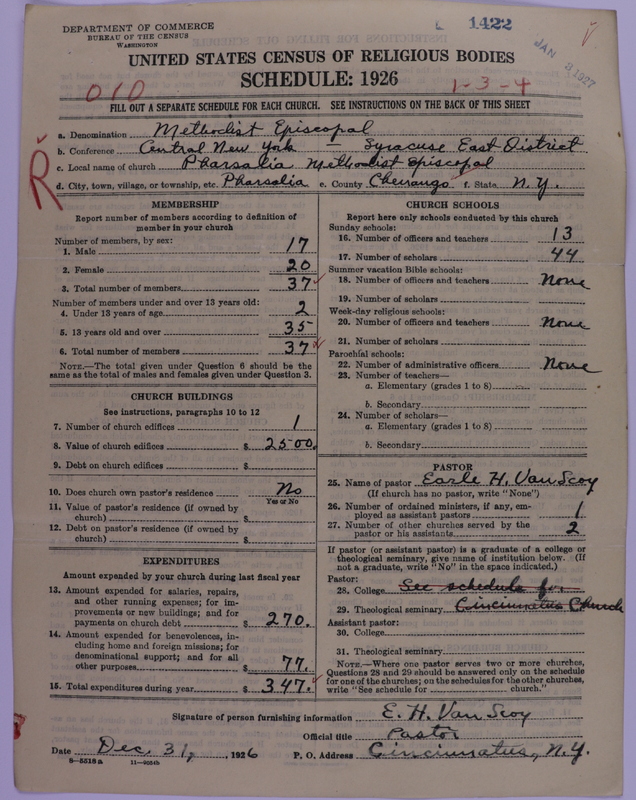 DEPARTMENT OF COMMERCE
BUREAU OF THE CENSUS
WASHINGTON
1422
JAN 3 1927
UNITED STATES CENSUS OF RELIGIOUS BODIES
SCHEDULE: 1926
010
1-3-4
FILL OUT A SEPARATE SCHEDULE FOR EACH CHURCH. SEE INSTRUCTIONS ON THE BACK OF THIS SHEET
R
a. Denomination Methodist Episcopal
b. Conference Central New York — Syracuse East District
c. Local name of church Pharsalia Methodist Episcopal
d. City, town, village, or township, etc. Pharsalia e. County Chenango f. State N.Y.
MEMBERSHIP
Report number of members according to definition of
member in your church
Number of members, by sex:
1. Male 17
2. Female 20
3. Total number of members 37
Number of members under and over 13 years old:
4. Under 13 years of age 2
5. 13 years old and over 35
6. Total number of members 37
NOTE.—The total given under Question 6 should be
same as the total of males and females given under Question 3.
CHURCH BUILDINGS
See instructions, paragraphs 10 to 12
7. Number of church edifices 1
8. Value of church edifices $ 2500.
9. Debt on church edifices $
10. Does church own pastor's residence No
Yes or No
11. Value of pastor's residence (if owned by
church) $
12. Debt on pastor's residence (if owned by
church) $
EXPENDITURES
Amount expended by your church during last fiscal year
13. Amount expended for salaries, repairs,
and other running expenses; for im-
provements or new buildings; and for
payments on church debt $ 270.
14. Amount expended for benevolences, in-
cluding home and foreign missions; for
denominational support; and for all
other purposes $ 77.
15. Total expenditures during year $ 347.
CHURCH SCHOOLS
Report here only schools conducted by this church
Sunday schools:
16. Number of officers and teachers 13
17. Number of scholars 44
Summer vacation Bible schools:
18. Number of officers and teachers None
19. Number of scholars
Week-day religious schools:
20. Number of officers and teachers None
21. Number of scholars
Parochial schools:
22. Number of administrative officers None
23. Number of teachers—
a. Elementary (grades 1 to 8)
b. Secondary
24. Number of scholars—
a. Elementary (grades 1 to 8)
b. Secondary
PASTOR
25. Name of pastor Earle H. Van Scoy
(If church has no pastor, write "None")
26. Number of ordained ministers, if any, em-
ployed as assistant pastors 1
27. Number of other churches served by the
pastor or his assistants 2
If pastor (or assistant pastor) is a graduate of a college or
theological seminary, give name of institution below. (If
not a graduate, write "No" in the space indicated.)
Pastor:
28. College See schedule for
29. Theological seminary Cincinnatus Church
Assistant pastor:
30. College
31. Theological seminary
NOTE.—Where one pastor serves two or more churches,
Questions 28 and 29 should be answered only on the schedule
for one of the churches; on the schedules for the other churches,
write "See schedule for church."
Signature of person furnishing information E. H. Van Scoy
Official title Pastor
Date Dec. 31, 1926 P. O. Address Cincinnatus, N.Y.
8—5518a 11—9554b